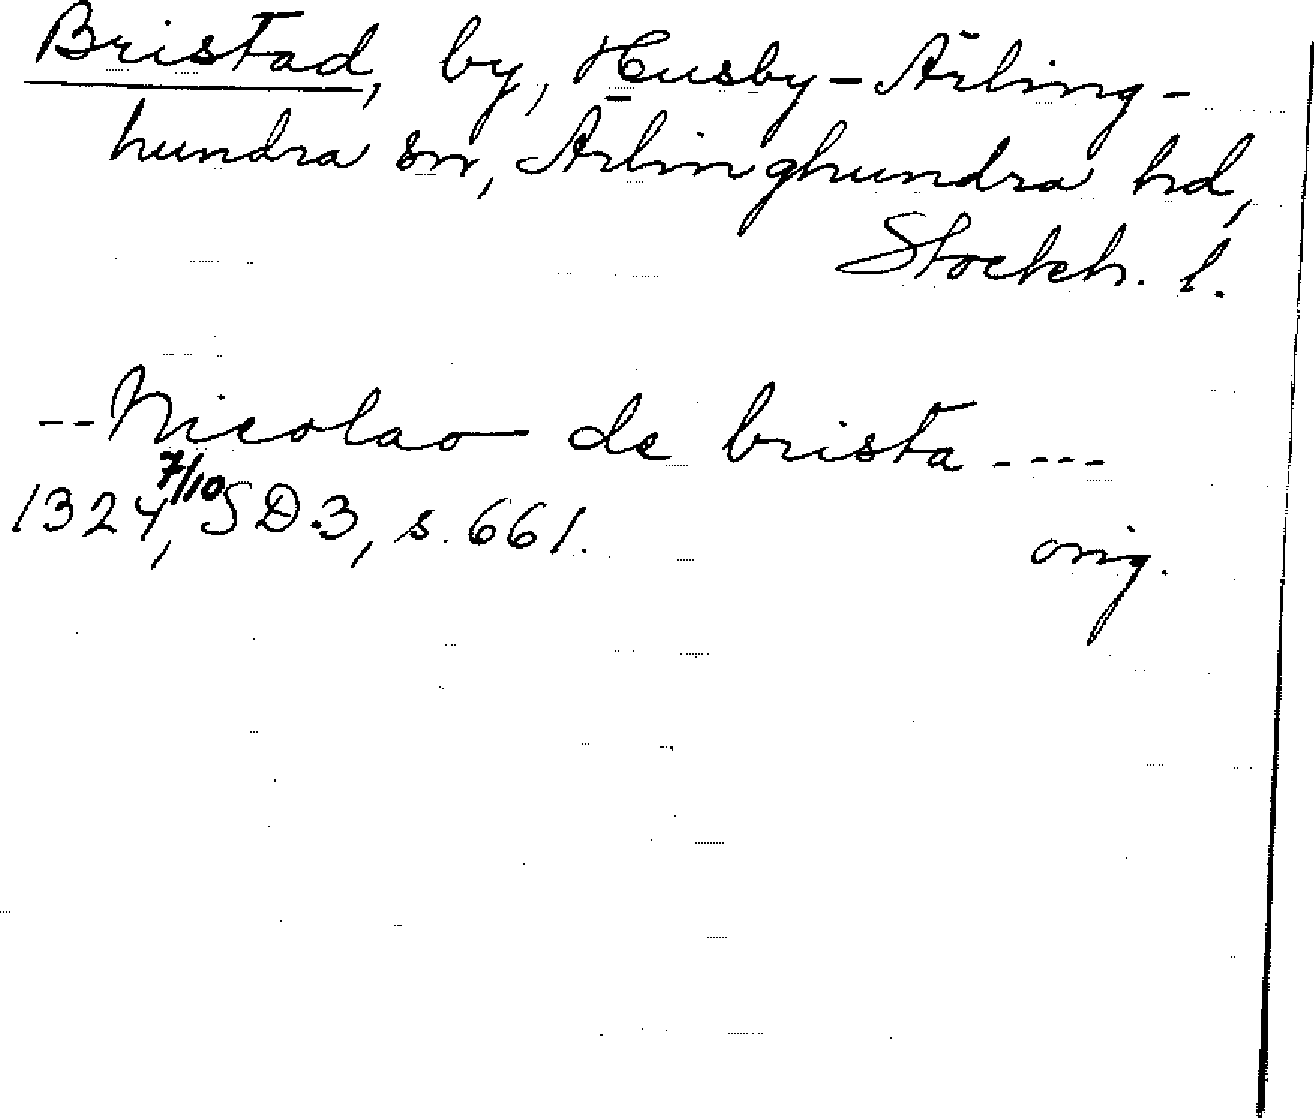 Bristad, by, Husby-Ärling-
hundra sn, Ärlinghundra hd,
Stockh. l.
--Nicolao de brista----
1324 7/10, SD.3, s. 661.
orig.